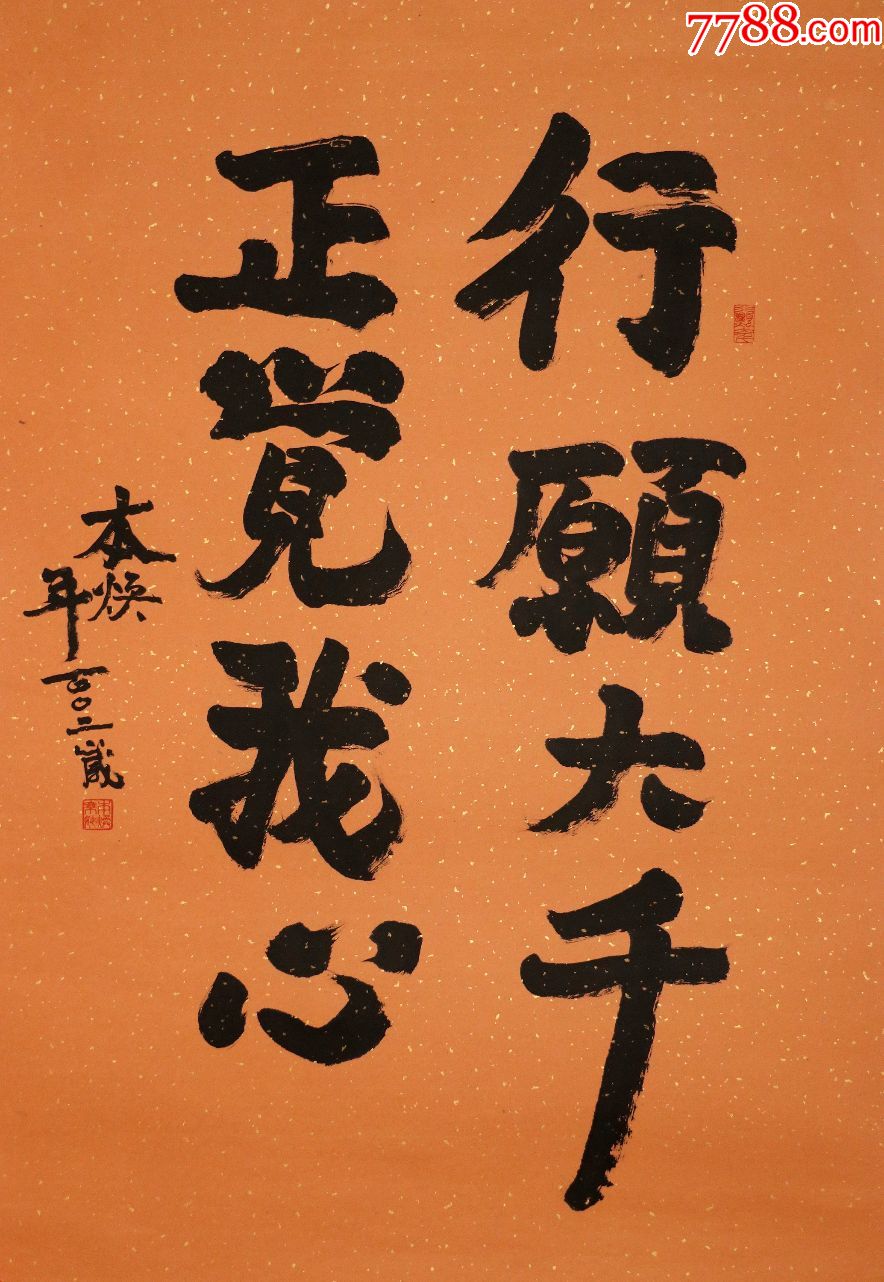 7788.com
行願大千
正覺我心
本焕
年一百〇二歲